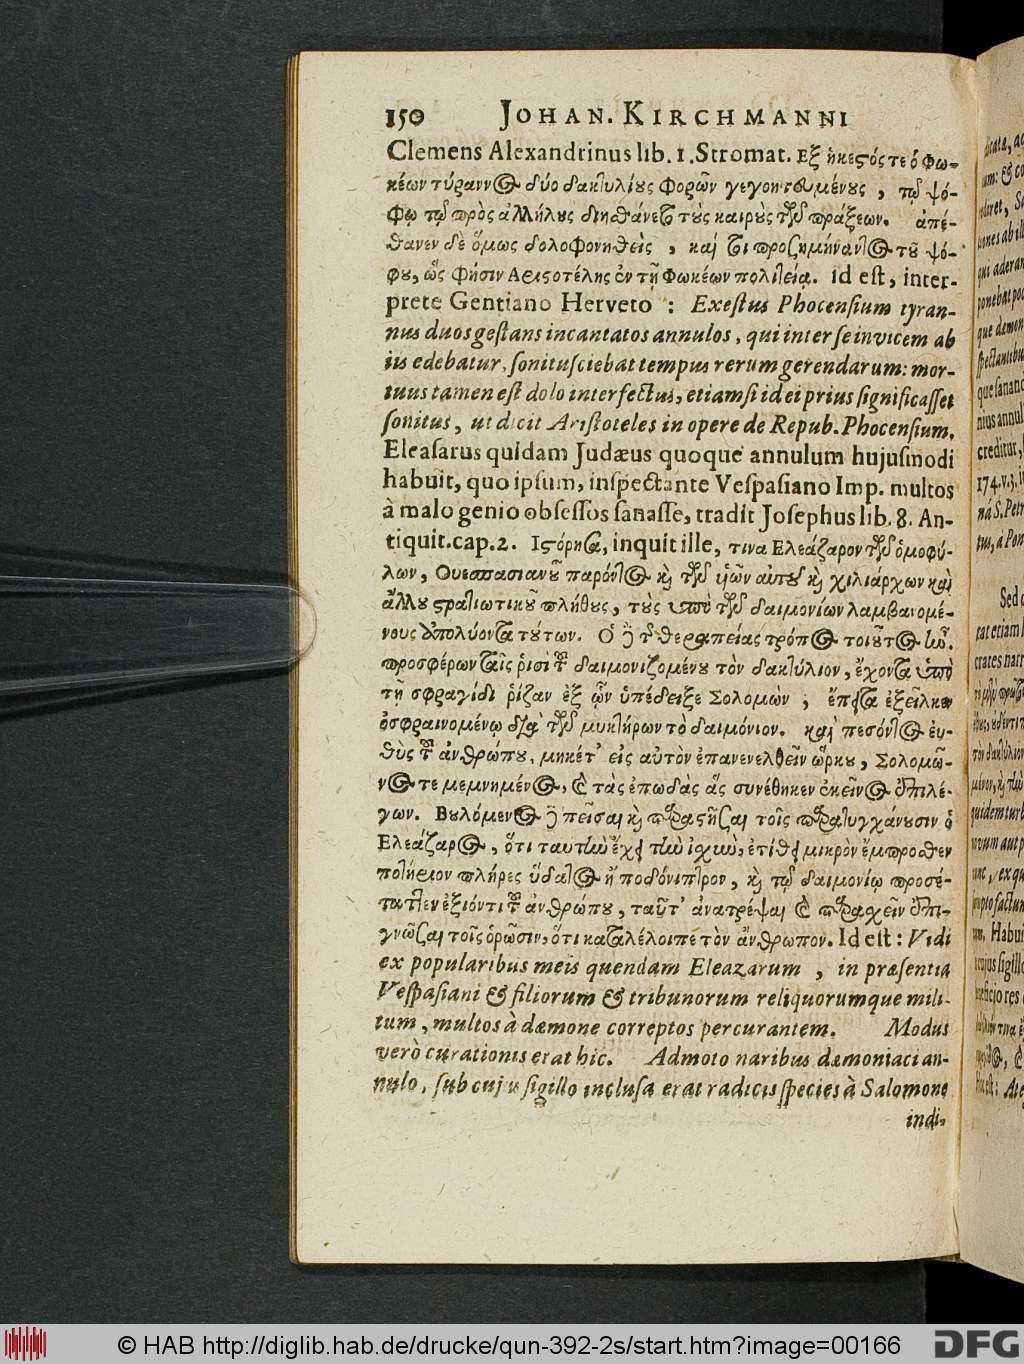 150 JOHAN. KIRCHMANNI
Clemens Alexandrinus lib. 1. Stromat. Εξ ἡκεστός τε ὁ Φω-
κέων τύραννος δύο δακτυλίους φορῶν γεγοητευμένους, τῷ ψό-
φῳ τῷ πρὸς ἀλλήλους διῃσθάνετο τοὺς καιροὺς τῶν πράξεων. ἀπέ-
θανεν δὲ ὅμως δολοφονηθεὶς, καί τοι προσημήναντος τοῦ ψό-
φου, ὥς φησιν Αριστοτέλης ἐν τῇ Φωκέων πολιτείᾳ. Id est, inter-
prete Gentiano Herveto : Exeſtus Phocenſium tyran-
nus duos geſtans incantatos annulos, qui inter ſe invicem ab
iis edebatur, ſonitu ſciebat tempus rerum gerendarum: mor-
tuus tamen eſt dolo interfectus, etiamſi id ei prius ſignificaſſet
ſonitus, ut dicit Ariſtoteles in opere de Repub. Phocenſium.
Eleaſarus quidam Judæus quoque annulum hujuſmodi
habuit, quo ipſum, inſpectante Veſpaſiano Imp. multos
à malo genio obſeſſos ſanaſſe, tradit Joſephus lib. 8. An-
tiquit. cap. 2. Ιστόρησα, inquit ille, τινα Ελεάζαρον τῶν ὁμοφύ-
λων, Ουεσπασιανοῦ παρόντος καὶ τῶν υἱῶν αὐτοῦ καὶ χιλιάρχων καὶ
ἄλλου στρατιωτικοῦ πλήθους, τοὺς ὑπὸ τῶν δαιμονίων λαμβανομέ-
νους ἀπολύοντα τούτων. Ὁ δὲ τῆς θεραπείας τρόπος τοιοῦτος ἦν.
προσφέρων ταῖς ῥισὶ τοῦ δαιμονιζομένου τὸν δακτύλιον, ἔχοντα ὑπὸ
τῇ σφραγίδι ῥίζαν ἐξ ὧν ὑπέδειξε Σολομὼν, ἔπειτα ἐξεῖλκεν
ὀσφραινομένῳ διὰ τῶν μυκτήρων τὸ δαιμόνιον. καὶ πεσόντος εὐ-
θὺς τοῦ ἀνθρώπου, μηκέτ᾽ εἰς αὐτὸν ἐπανενελθεῖν ὥρκου, Σολομῶ-
νος τε μεμνημένος, καὶ τὰς ἐπωδὰς ἃς συνέθηκεν ἐκεῖνος ἐπιλέ-
γων. Βουλόμενος δὲ πεῖσαι καὶ παραστῆσαι τοῖς παρατυγχάνουσιν ὁ
Ελεάζαρος, ὅτι ταυτὴν ἔχει τὴν ἰχὺν, ἐτίθει μικρὸν ἔμπροσθεν
ποτήριον πλήρες ὕδατος ἢ ποδόνιπτρον, καὶ τῷ δαιμονίῳ προσέ-
ταττεν ἐξιόντι τοῦ ἀνθρώπου, ταῦτ᾽ ἀνατρέψαι καὶ παραχεῖν ἐπι-
γνῶσαι τοῖς ὁρῶσιν, ὅτι καταλέλοιπε τὸν ἄνθρωπον. Id eſt : Vidi
ex popularibus meis quendam Eleazarum, in præſentia
Veſpaſiani & filiorum & tribunorum reliquorumque mili-
tum, multos à dæmone correptos percurantem. Modus
verò curationis erat hic. Admoto naribus dæmoniaci an-
nulo, ſub cuju ſigillo incluſa erat radicis ſpecies à Salomone
indi-
© HAB http://diglib.hab.de/drucke/qun-392-2s/start.htm?image=00166
DFG